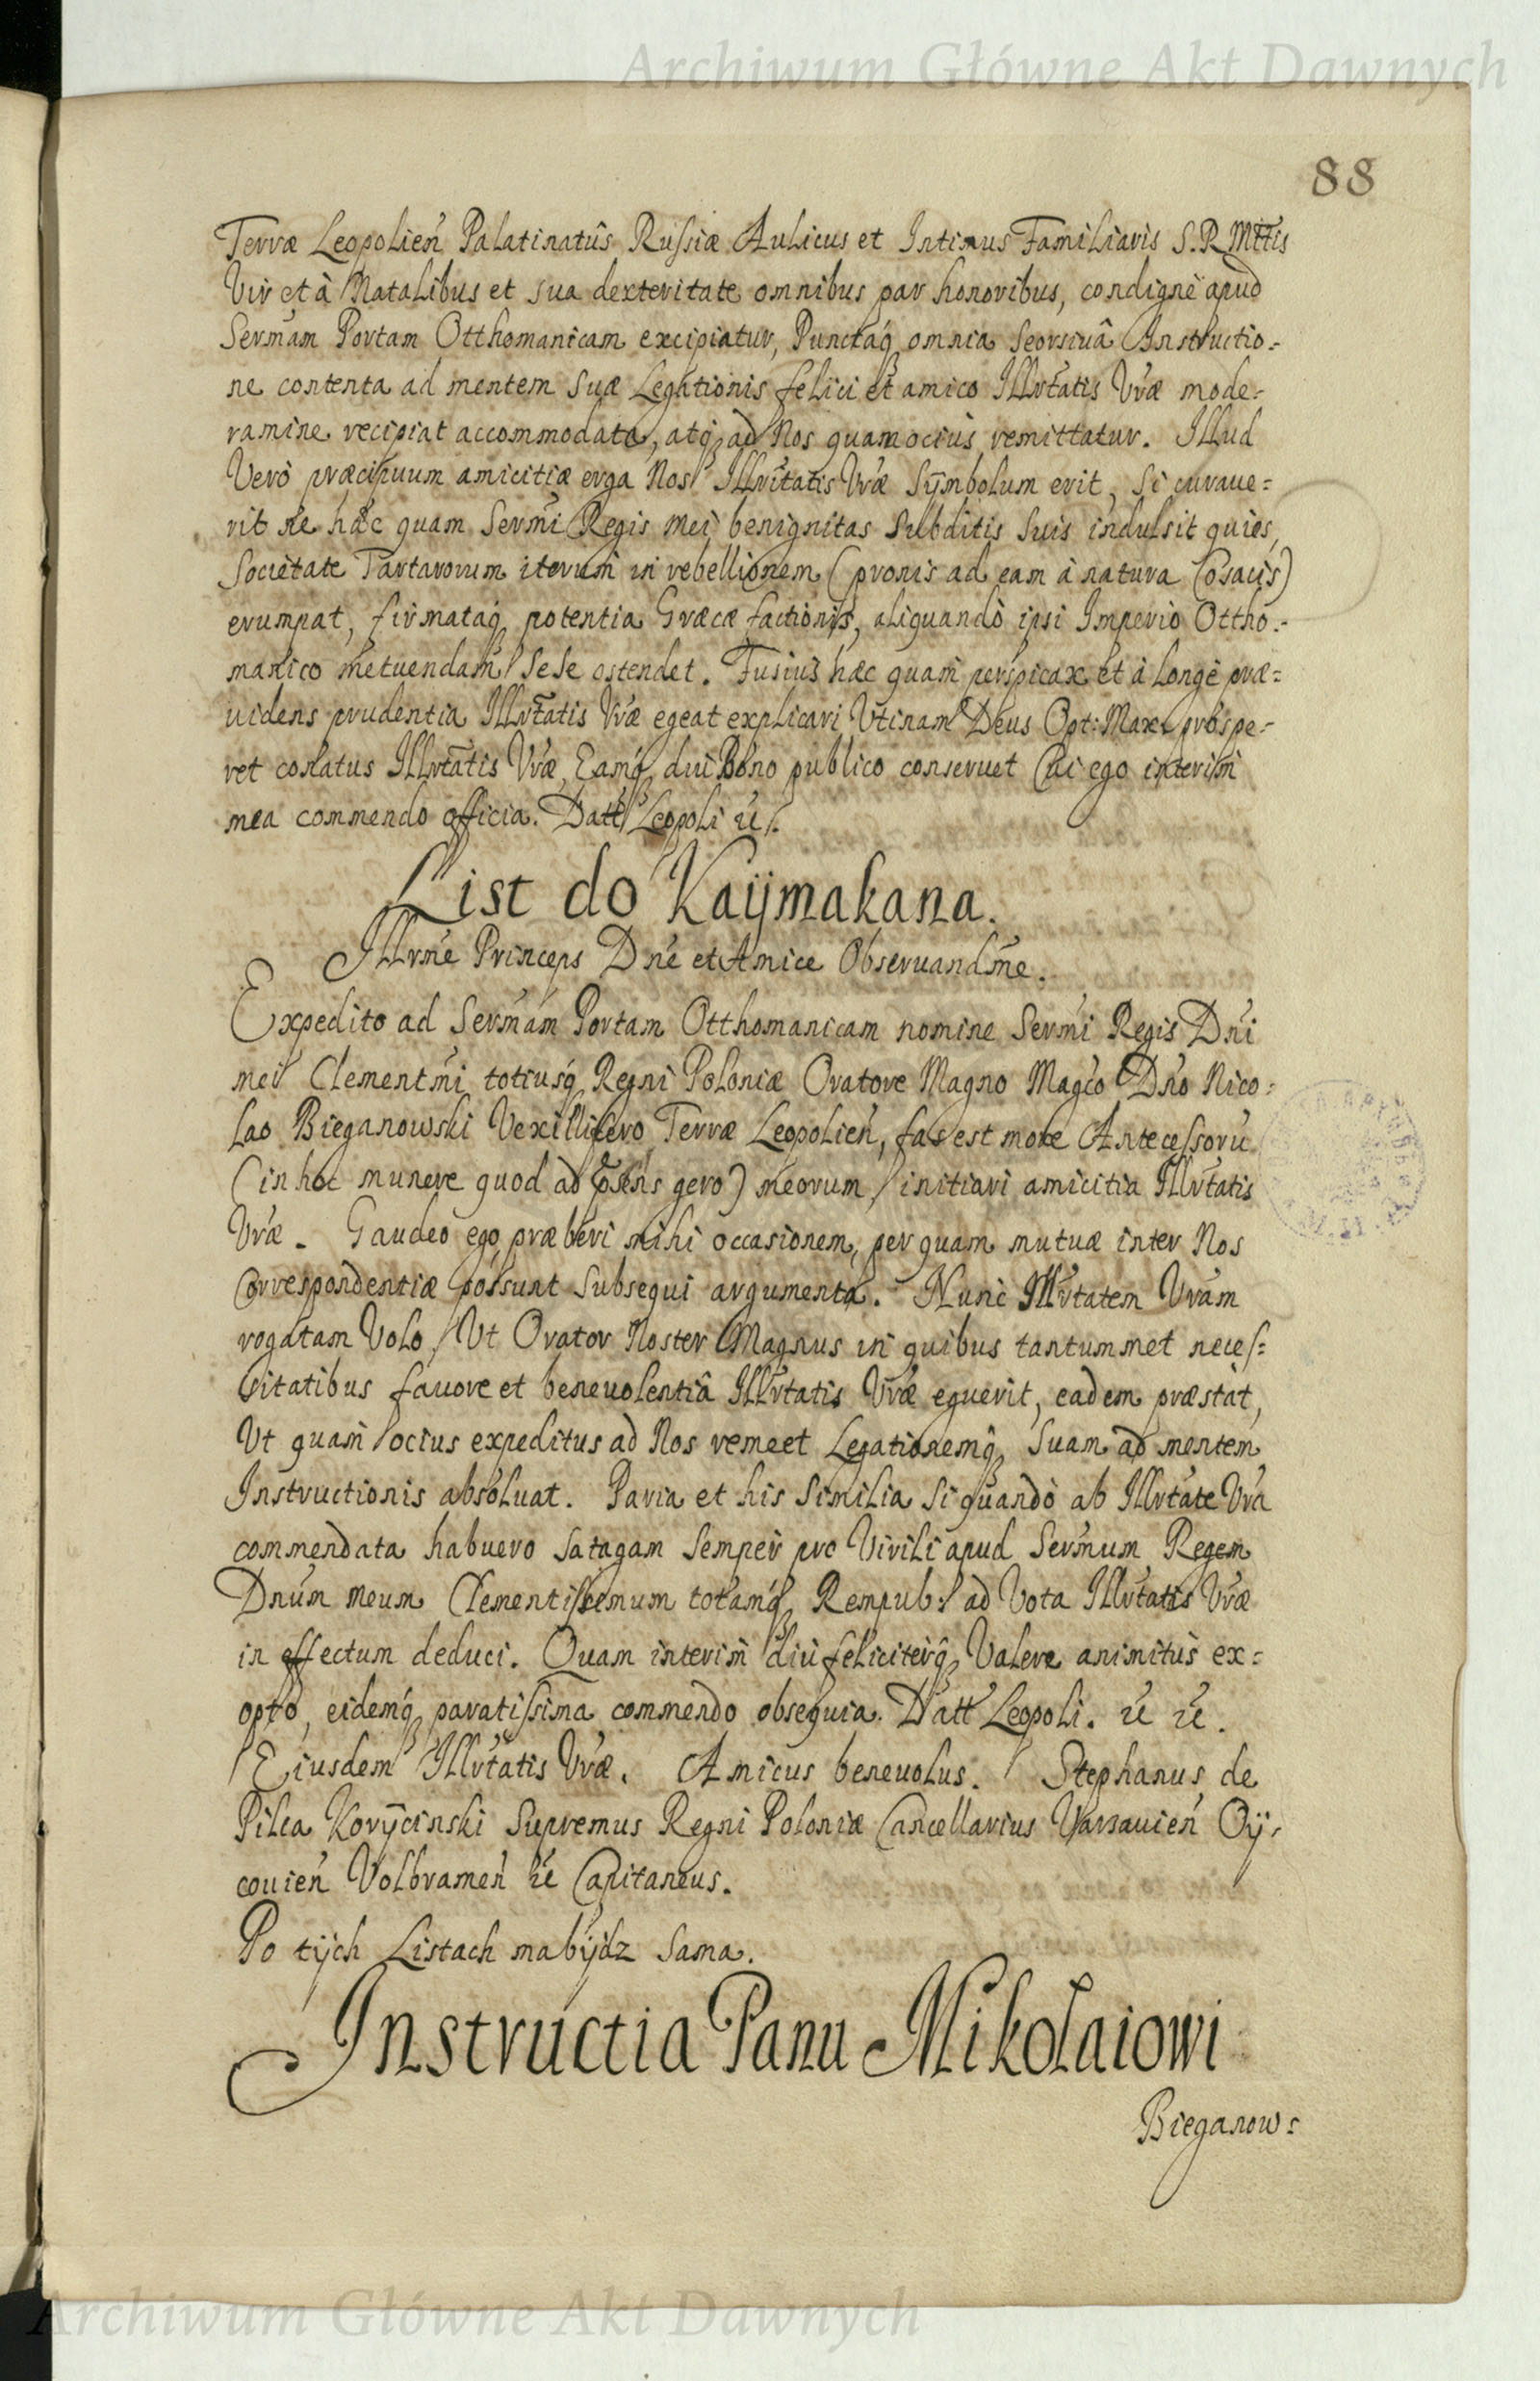 Archiwum Główne Akt Dawnych
88
Terræ Leopolień Palatinatûs Russiæ Aulicus et Intimus Familiaris S.R.Mttis
Vir et à Natalibus et sua dexteritate omnibus par honoribus, condignè apud
Sermam Portam Otthomanicam excipiatur, Punctaq, omnia seorsiuâ Instructio=
ne contenta ad mentem suæ Legationis felici et amico Illrtatis Vræ mode=
ramine recipiat accommodata, atq, ad Nos quamocius remittatur. Illud
Verò præcipuum amicitiæ erga Nos Illritatis Vræ Sÿmbolum erit, si curaue=
rit ne hæc quam Sermi Regis mei benignitas subditis suis indulsit quies,
Societate Tartarorum iterum in rebellionem (pronis ad eam à natura Cosacis)
erumpat, firmataq, potentia Græcæ factionis, aliquandò ipsi Imperio Ottho=
manico metuendam sese ostendet. Fusius hæc quam perspicax et à longè præ=
uidens prudentia Illrtatis Vræ egeat explicari Vtinam Deus Opt: Max: prospe=
ret conatus Illrtatis Vræ, Eamq, diu Bono publico conseruet Cui ego interim
mea commendo officia. Datt Leopoli &c.
List do Kaÿmakana.
Illrme Princeps Dne et Amice Obseruandme.
Expedito ad Sermam Portam Otthomanicam nomine Sermi Regis Dni
mei Clementmi totiusq, Regni Poloniæ Oratore Magno Magco Dno Nico=
lao Bieganowski Vexillifero Terræ Leopolień, fas est more Antecessorū
(in hoc munere quod ad psens gero) meorum, initiari amicitia Illrtatis
Vræ. Gaudeo ego præberi mihi occasionem, per quam mutuæ inter Nos
Correspondentiæ possunt subsequi argumenta. Nunc Illrtatem Vram
rogatam Volo, Vt Orator Noster Magnus in quibus tantummet neces=
sitatibus fauore et beneuolentiâ Illrtatis Vræ eguerit, eadem præstat,
Vt quam ocius expeditus ad Nos remeet Legationemq, Suam ad mentem
Instructionis absoluat. Paria et his similia si quandò ab Illrtate Vra
commendata habuero satagam semper pro Virili apud Sermum Regem
Dnum meum Clementissimum totamq, Rempub: ad Vota Illrtatis Vræ
in effectum deduci. Quam interim diu feliciterq, Valere animitùs ex=
opto, eidemq, paratissima commendo obsequia. Datt Leopoli. &c &c.
Eiusdem Illrtatis Vræ. Amicus beneuolus. Stephanus de
Pilca Korÿcinski Supremus Regni Poloniæ Cancellarius Varsauień Oÿ=
couień Volbrameń &c Capitaneus.
Po tÿch Listach ma bÿdz sama.
Instructia Panu Mikołaiowi
Bieganow=
Archiwum Główne Akt Dawnych